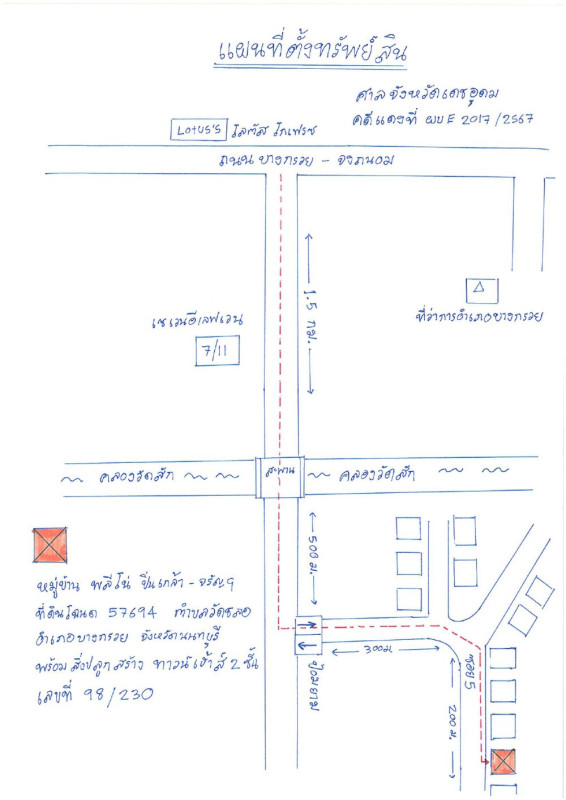 แผนที่ตั้งทรัพย์สิน
ศาลจังหวัดเดชอุดม
คดีแดงที่ ผบE 2017/2567
LOTUS'S โลตัส โกเฟรซ
ถนน บางกรวย - จงถนอม
1.5 กม.
ที่ว่าการอำเภอบางกรวย
เซเว่นอีเลฟเว่น
7/11
คลองวัดสัก
สะพาน
คลองวัดสัก
500 ม.
หมู่บ้าน พลีโน่ ปิ่นเกล้า - จรัญฯ
ที่ดินโฉนด 57694 ตำบลวัดชลอ
อำเภอบางกรวย จังหวัดนนทบุรี
พร้อมสิ่งปลูกสร้าง ทาวน์เฮ้าส์ 2 ชั้น
เลขที่ 98/230
300ม
ป้อมยาม
ซอย 5
200 ม.